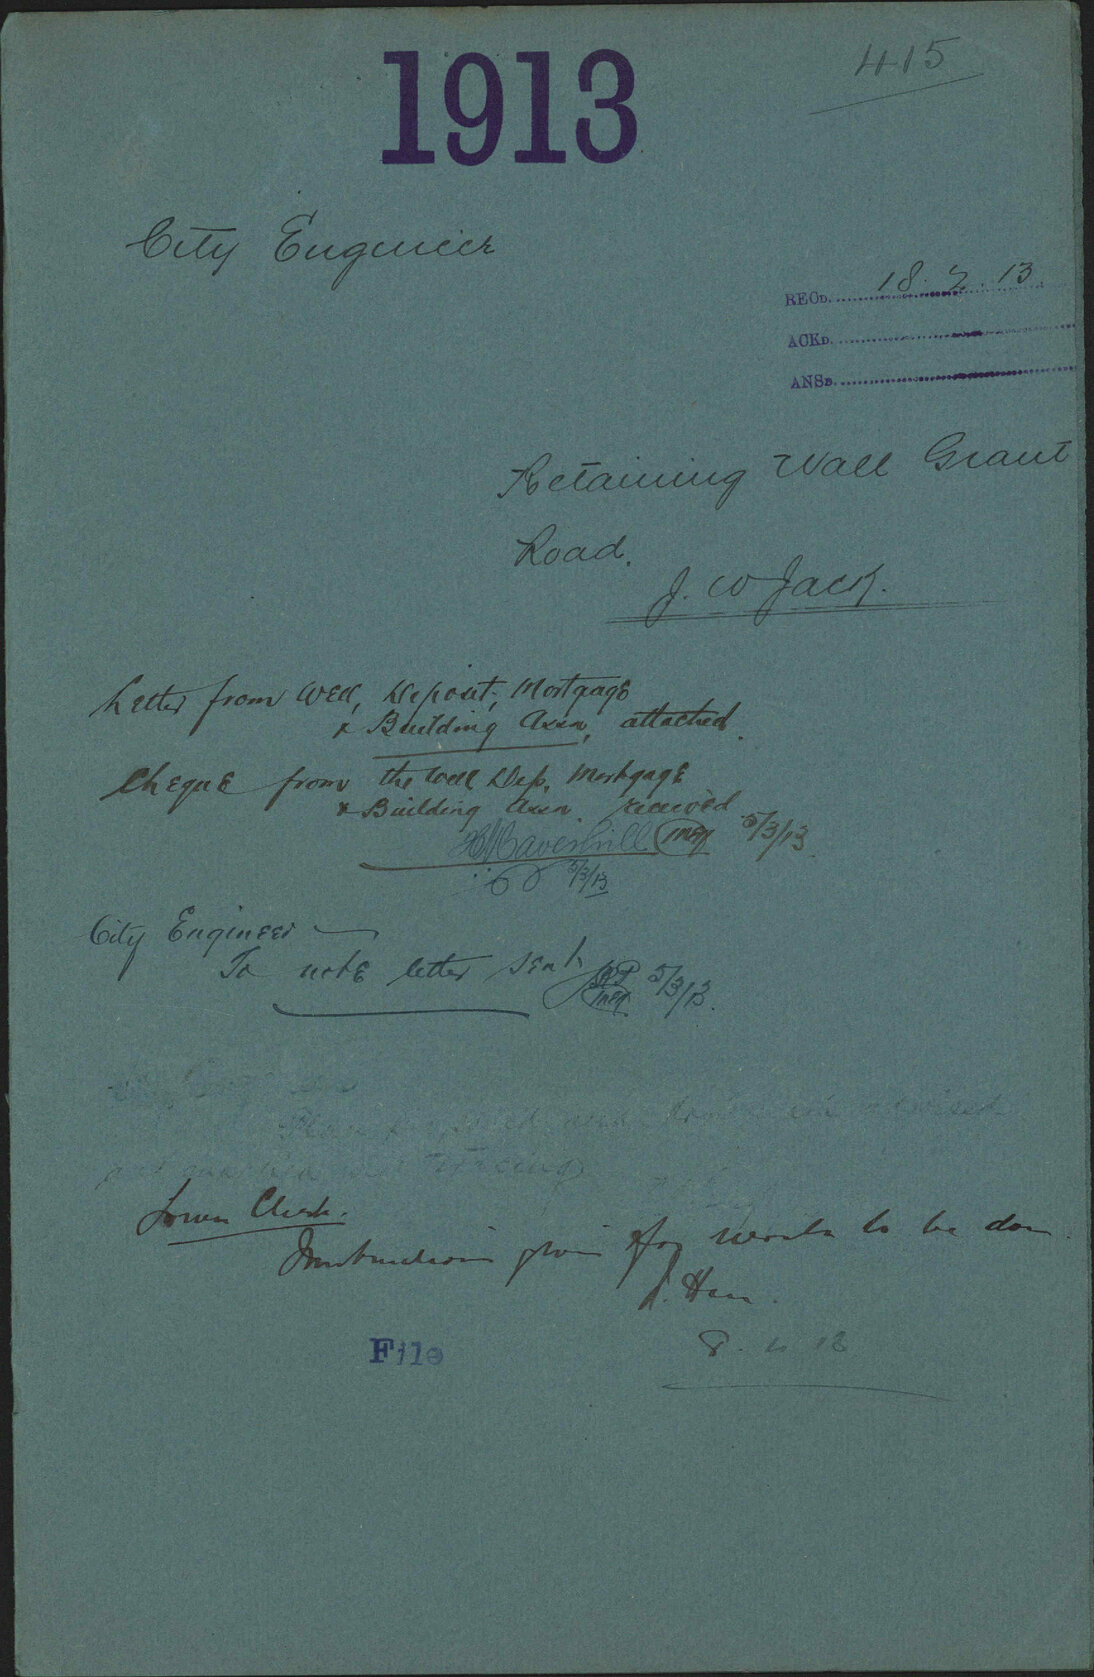 1913
415
City Engineer
RECD. 18. 2. 13
ACKD.
ANSD.
Retaining Wall Grant
Road.
J. W Jack.
Letter from Well, Deposit, Mortgage
& Building Assn, attached.
Cheque from the Well Dep. Mortgage
& Building Assn. received
5/3/13.
5/3/13
City Engineer
To note letter sent
5/3/13.
Town Clerk.
Instructions given for work to be done.
File
8. 4 13